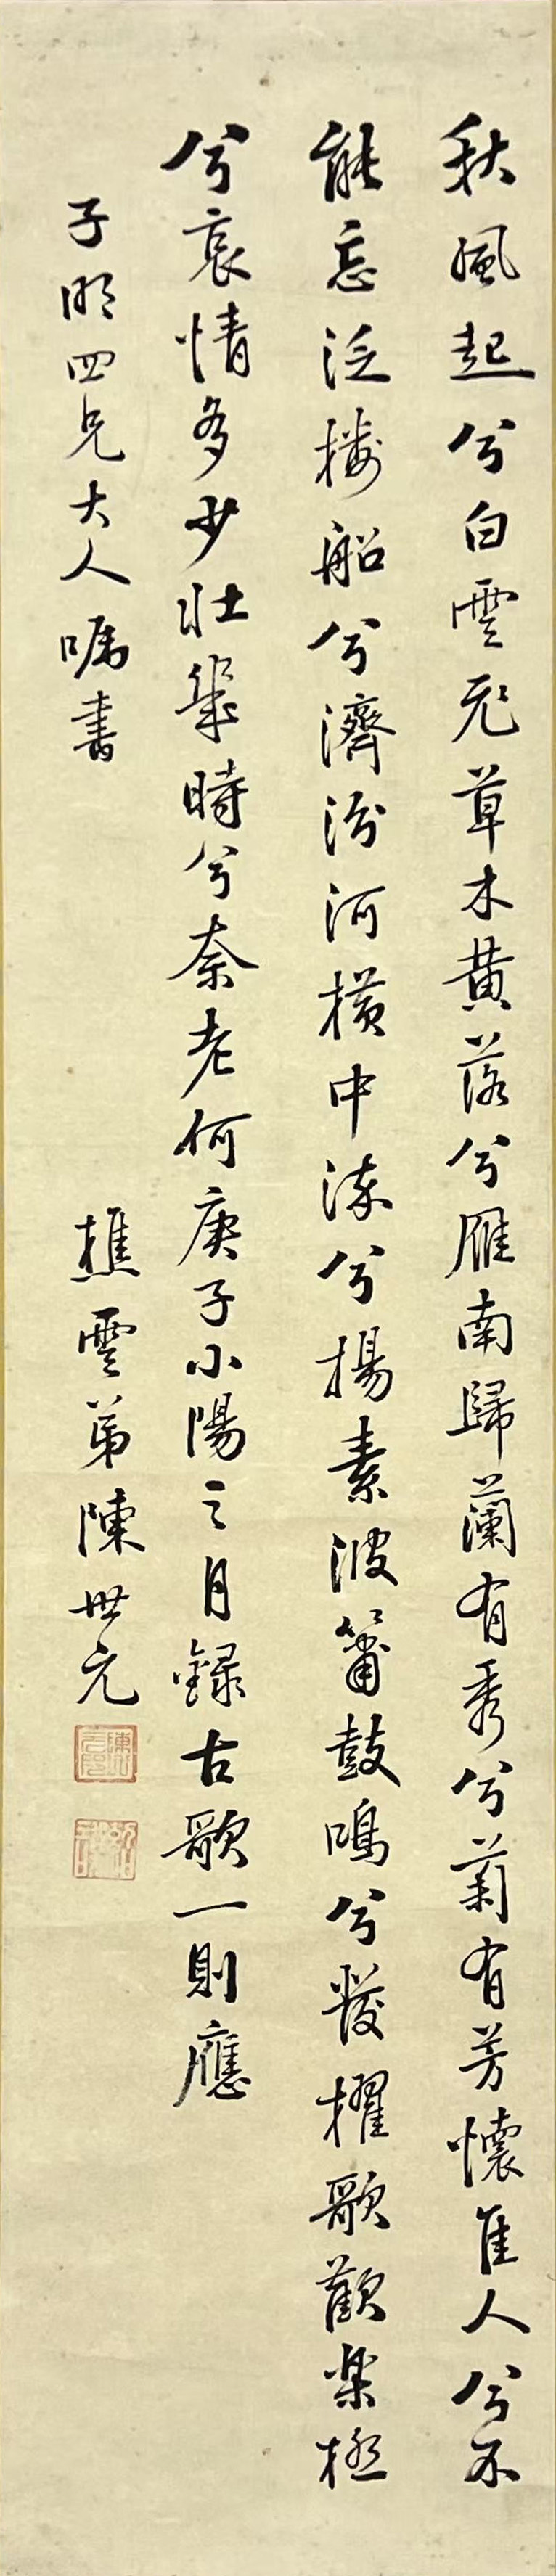 秋風起兮白雲飛草木黃落兮雁南歸蘭有秀兮菊有芳懷佳人兮不
能忘泛樓船兮濟汾河橫中流兮揚素波簫鼓鳴兮發櫂歌歡樂極
兮哀情多少壯幾時兮奈老何庚子小陽之月錄古歌一則應
子明四兄大人囑書
樵雲弟陳世元